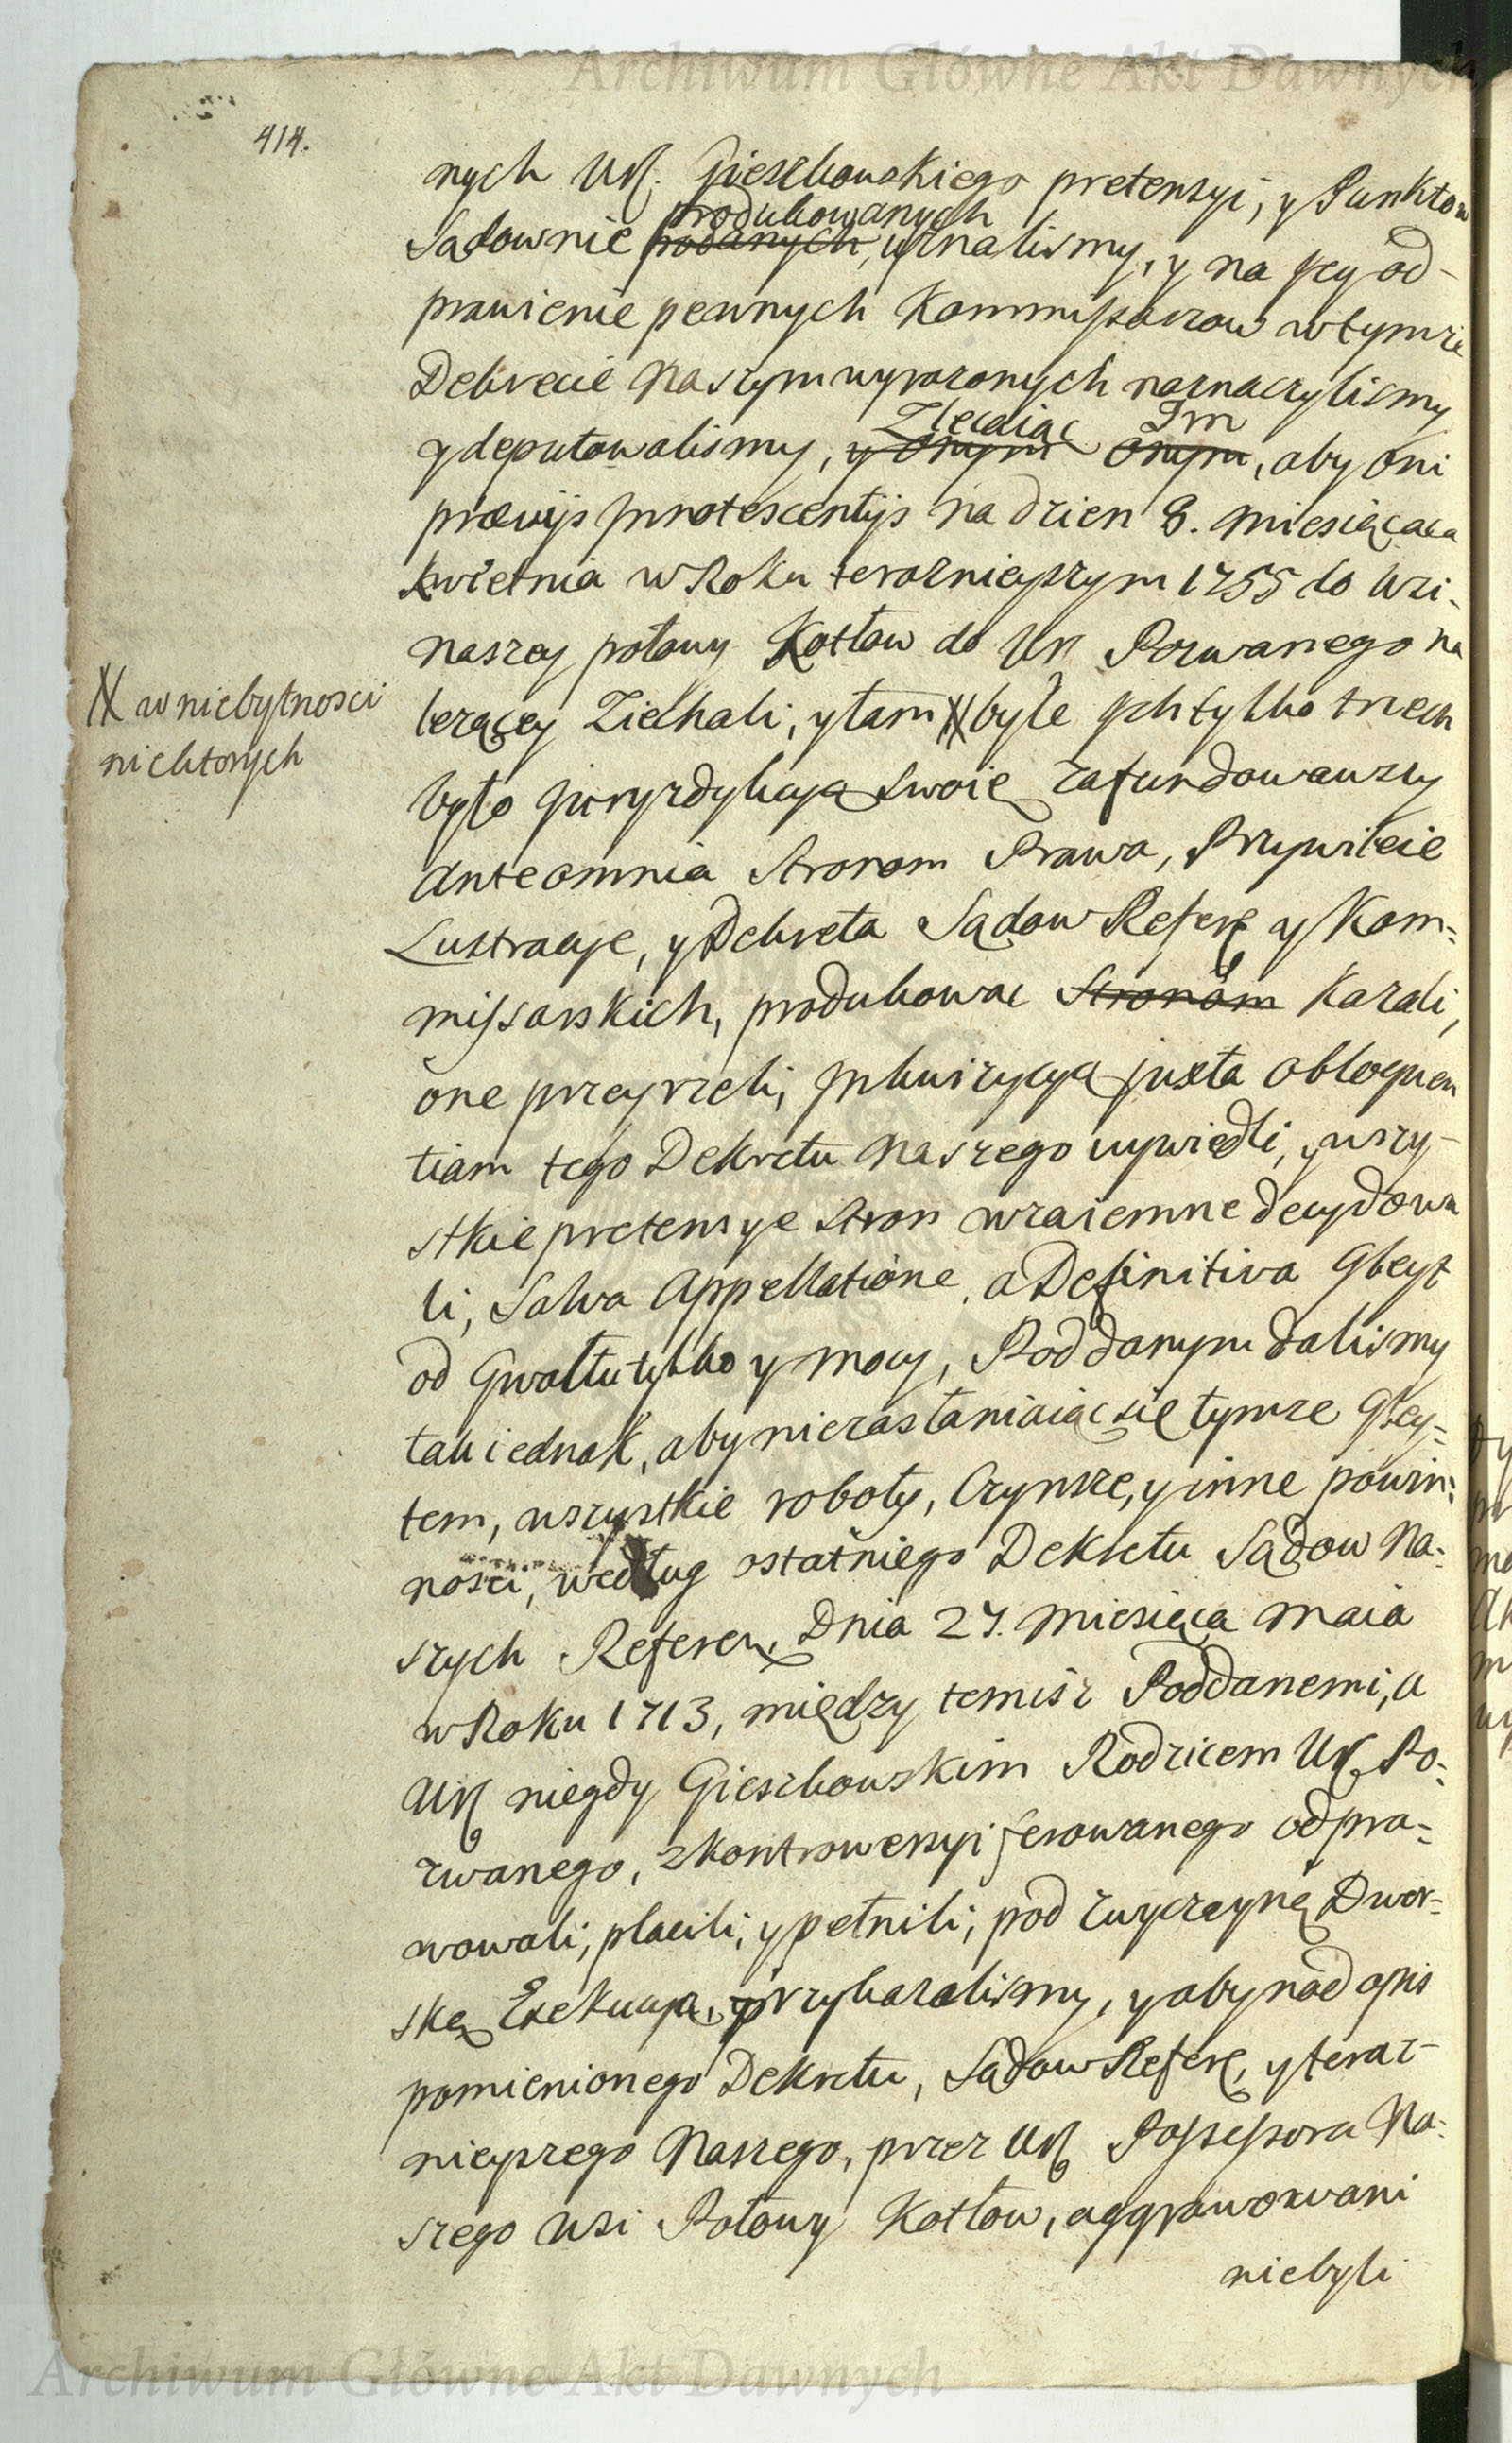 Archiwum Główne Akt Dawnych
414.
nych Ur. Gieszkowskiego pretensyi, y Punktow
produkowanych
Sadownie podanych, uznalismy, y na jey od-
prawienie pewnych Kommissarzow w tymze
Dekrecie Naszym wyrazonych naznaczylismy
Zlecaiąc Im
y deputowalismy, y onym onym, aby oni
praevijs Innotescentijs na dzien 8. Miesiącaca
kwietnia w Roku teraznieyszym 1755 do Wsi-
naszey połowy Kotłow do Ur. Pozwanego na
X w niebytnosci
niektorych
lezącey Ziechali, y tam X byle Ich tylko trzech
było Juryzdykcyą swoię zafundowawszy
ante omnia Stronom Prawa, Przywileie
Lustracye, y Dekreta Sądow Refere y Kom=
missarskich, produkowac Stronom kazali,
one przeyrzeli, Inkwizycyą juxta obloquen
tiam tego Dekretu Naszego wywiedli, y wszy-
stkie pretensye stron wzaiemne decydowa
li, Salva Appellatione a Definitiva Gleyt
od Gwałtu tylko y mocy, Poddanym dalismy
tak iednak, aby niezasłaniaiąc się tymze Gley=
tem, wszystkie roboty, Czynsze, y inne powin=
nosci, według ostatniego Dekretu Sądow Na=
szych Referen, Dnia 27. Miesiąca Maia
w Roku 1713, między temisz Poddanemi, a
Ur niegdy Gieszkowskim Rodzicem Ur. Po=
zwanego, z kontrowersyi ferowanego odpra=
wowali, płacili, y pełnili, pod zwyczayną Dwor=
ską Exekucyą, przykazalismy, y aby nad opis
pomienionego Dekretu, Sądow Refere, y teraz-
nieyszego Naszego, przez Ur Possessora Na=
szego Wsi Połowy Kotłow, aggrawowani
niebyli
Archiwum Główne Akt Dawnych